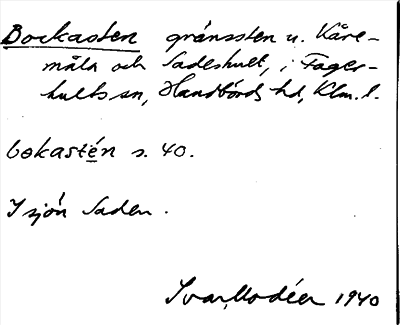 Bockasten gränssten u. Kåre-
måla och Sadeshult, i Fager-
hults sn, Handbörds hd, Klm. l.
bokastén s. 40.
I sjön Saden.
Ivar Modéer 1940